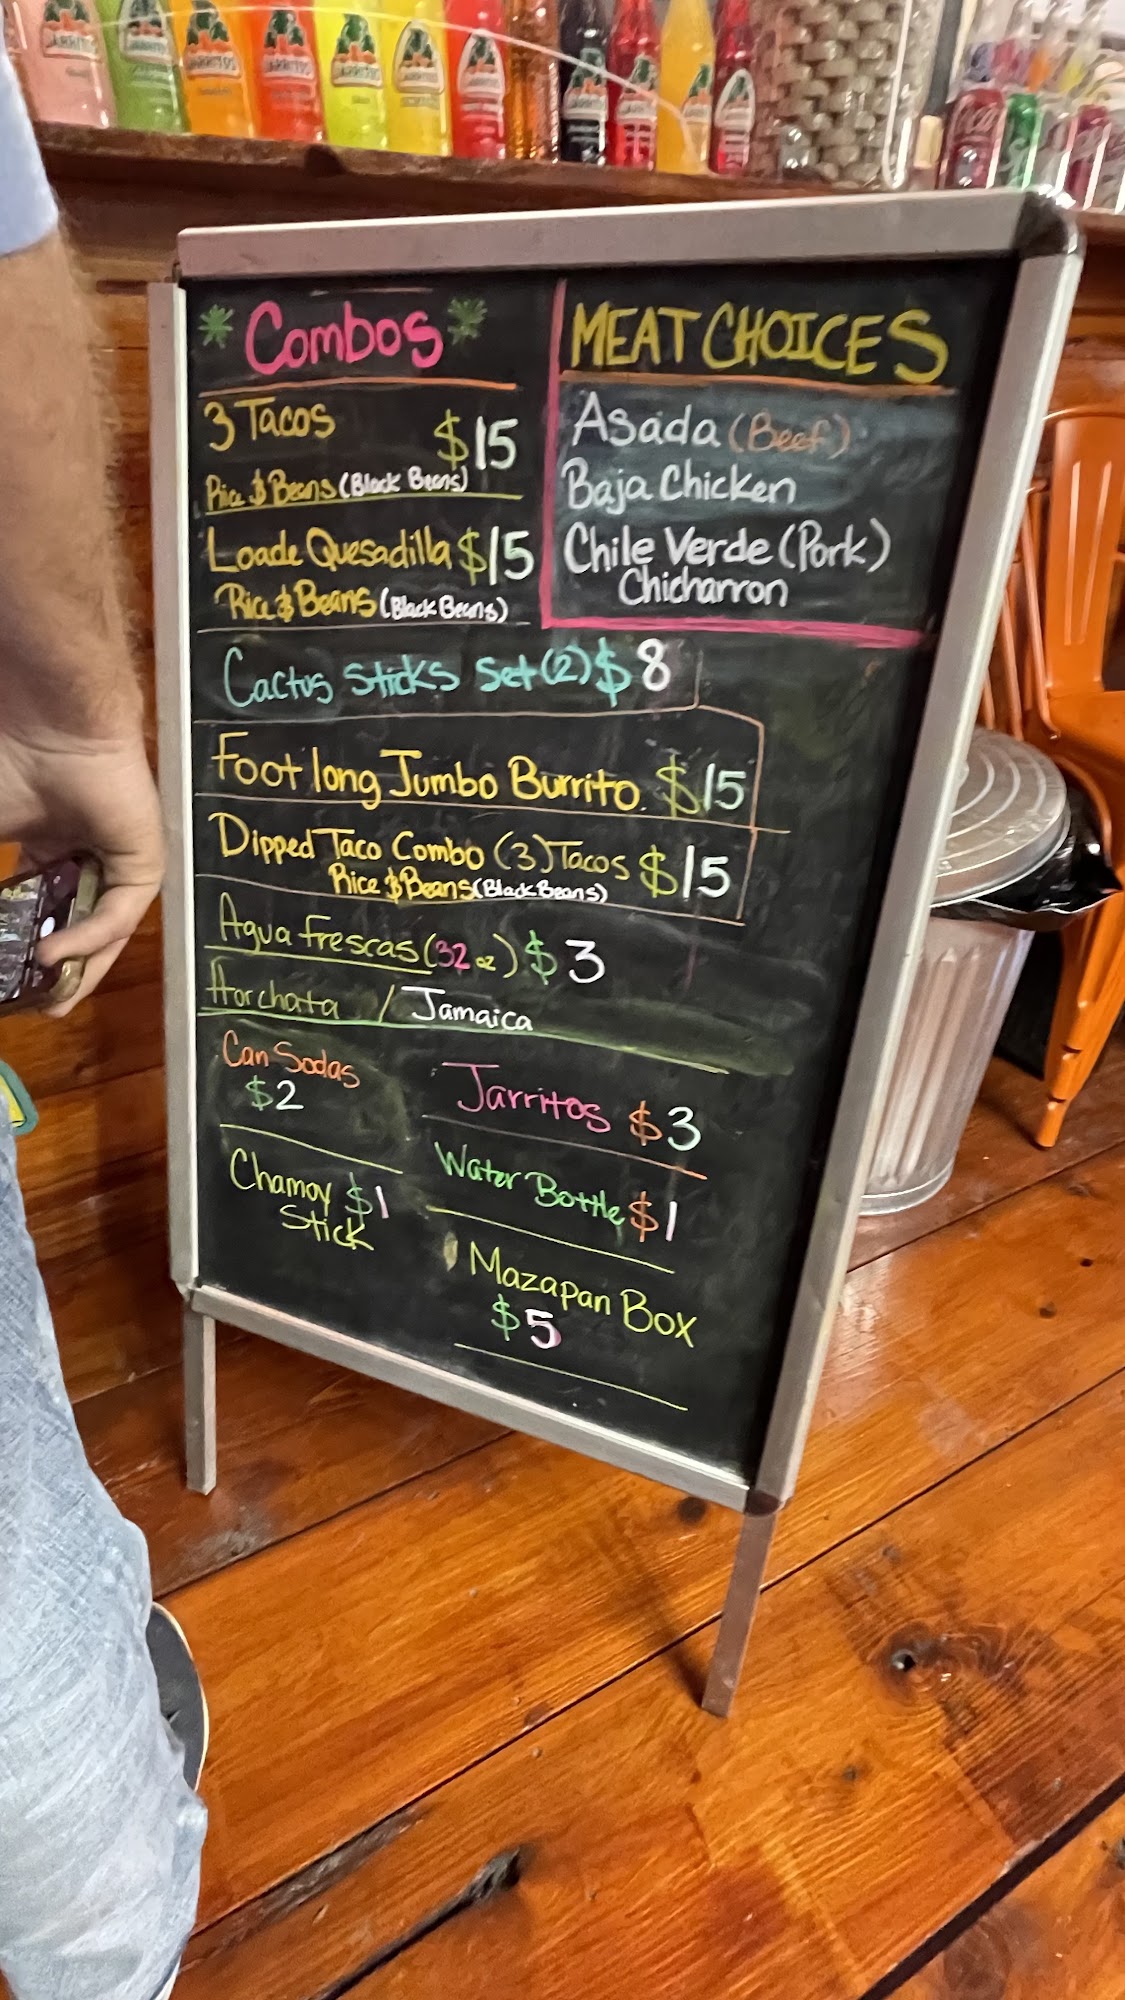 * Combos *
3 Tacos $15
Rice $ Beans (Black Beans)
Loade Quesadilla $15
Rice $ Beans (Black Beans)
MEAT CHOICES
Asada (Beef)
Baja Chicken
Chile Verde (Pork)
Chicharron
Cactus Sticks Set (2) $8
Foot long Jumbo Burrito. $15
Dipped Taco Combo (3) Tacos $15
Rice $ Beans (Black Beans)
Agua frescas (32 oz) $3
Horchata / Jamaica
Can Sodas
$2
Jarritos $3
Chamoy $1
Stick
Water Bottle $1
Mazapan Box
$5
JARRITOS
JARRITOS
JARRITOS
JARRITOS
JARRITOS